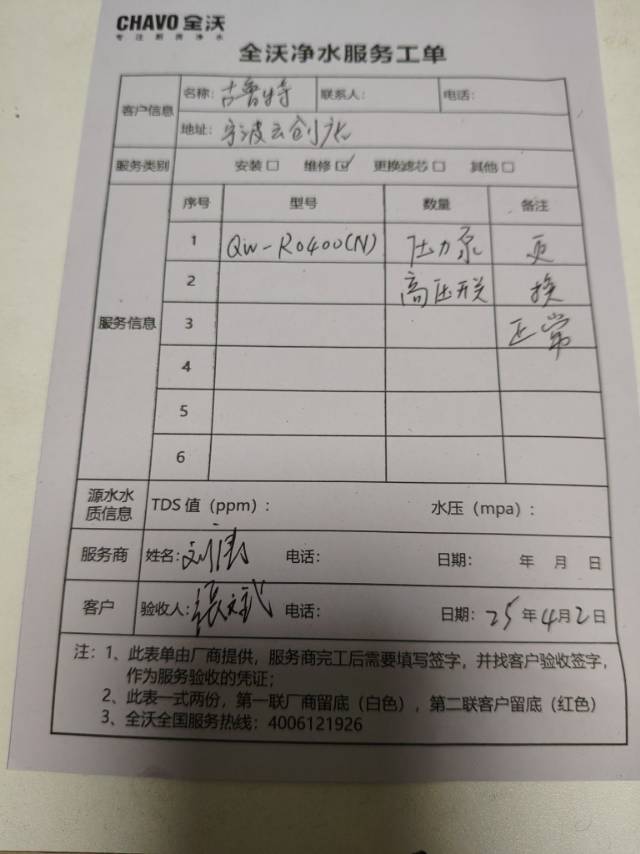 CHAVO 全沃
专注厨房净水
全沃净水服务工单
客户信息 名称：古鲁特 联系人： 电话：
地址：宁波云创
服务类别 安装□ 维修☑ 更换滤芯□ 其他□
序号 型号 数量 备注
服务信息
1 QW-R0400(N) 压力泵 更
2 高压开关 换
3 正常
4
5
6
源水水质信息 TDS 值（ppm）： 水压（mpa）：
服务商 姓名：刘涛 电话： 日期： 年 月 日
客户 验收人：张文武 电话： 日期：25年4月2日
注：1、此表单由厂商提供，服务商完工后需要填写签字，并找客户验收签字，
作为服务验收的凭证；
2、此表一式两份，第一联厂商留底（白色），第二联客户留底（红色）
3、全沃全国服务热线：4006121926